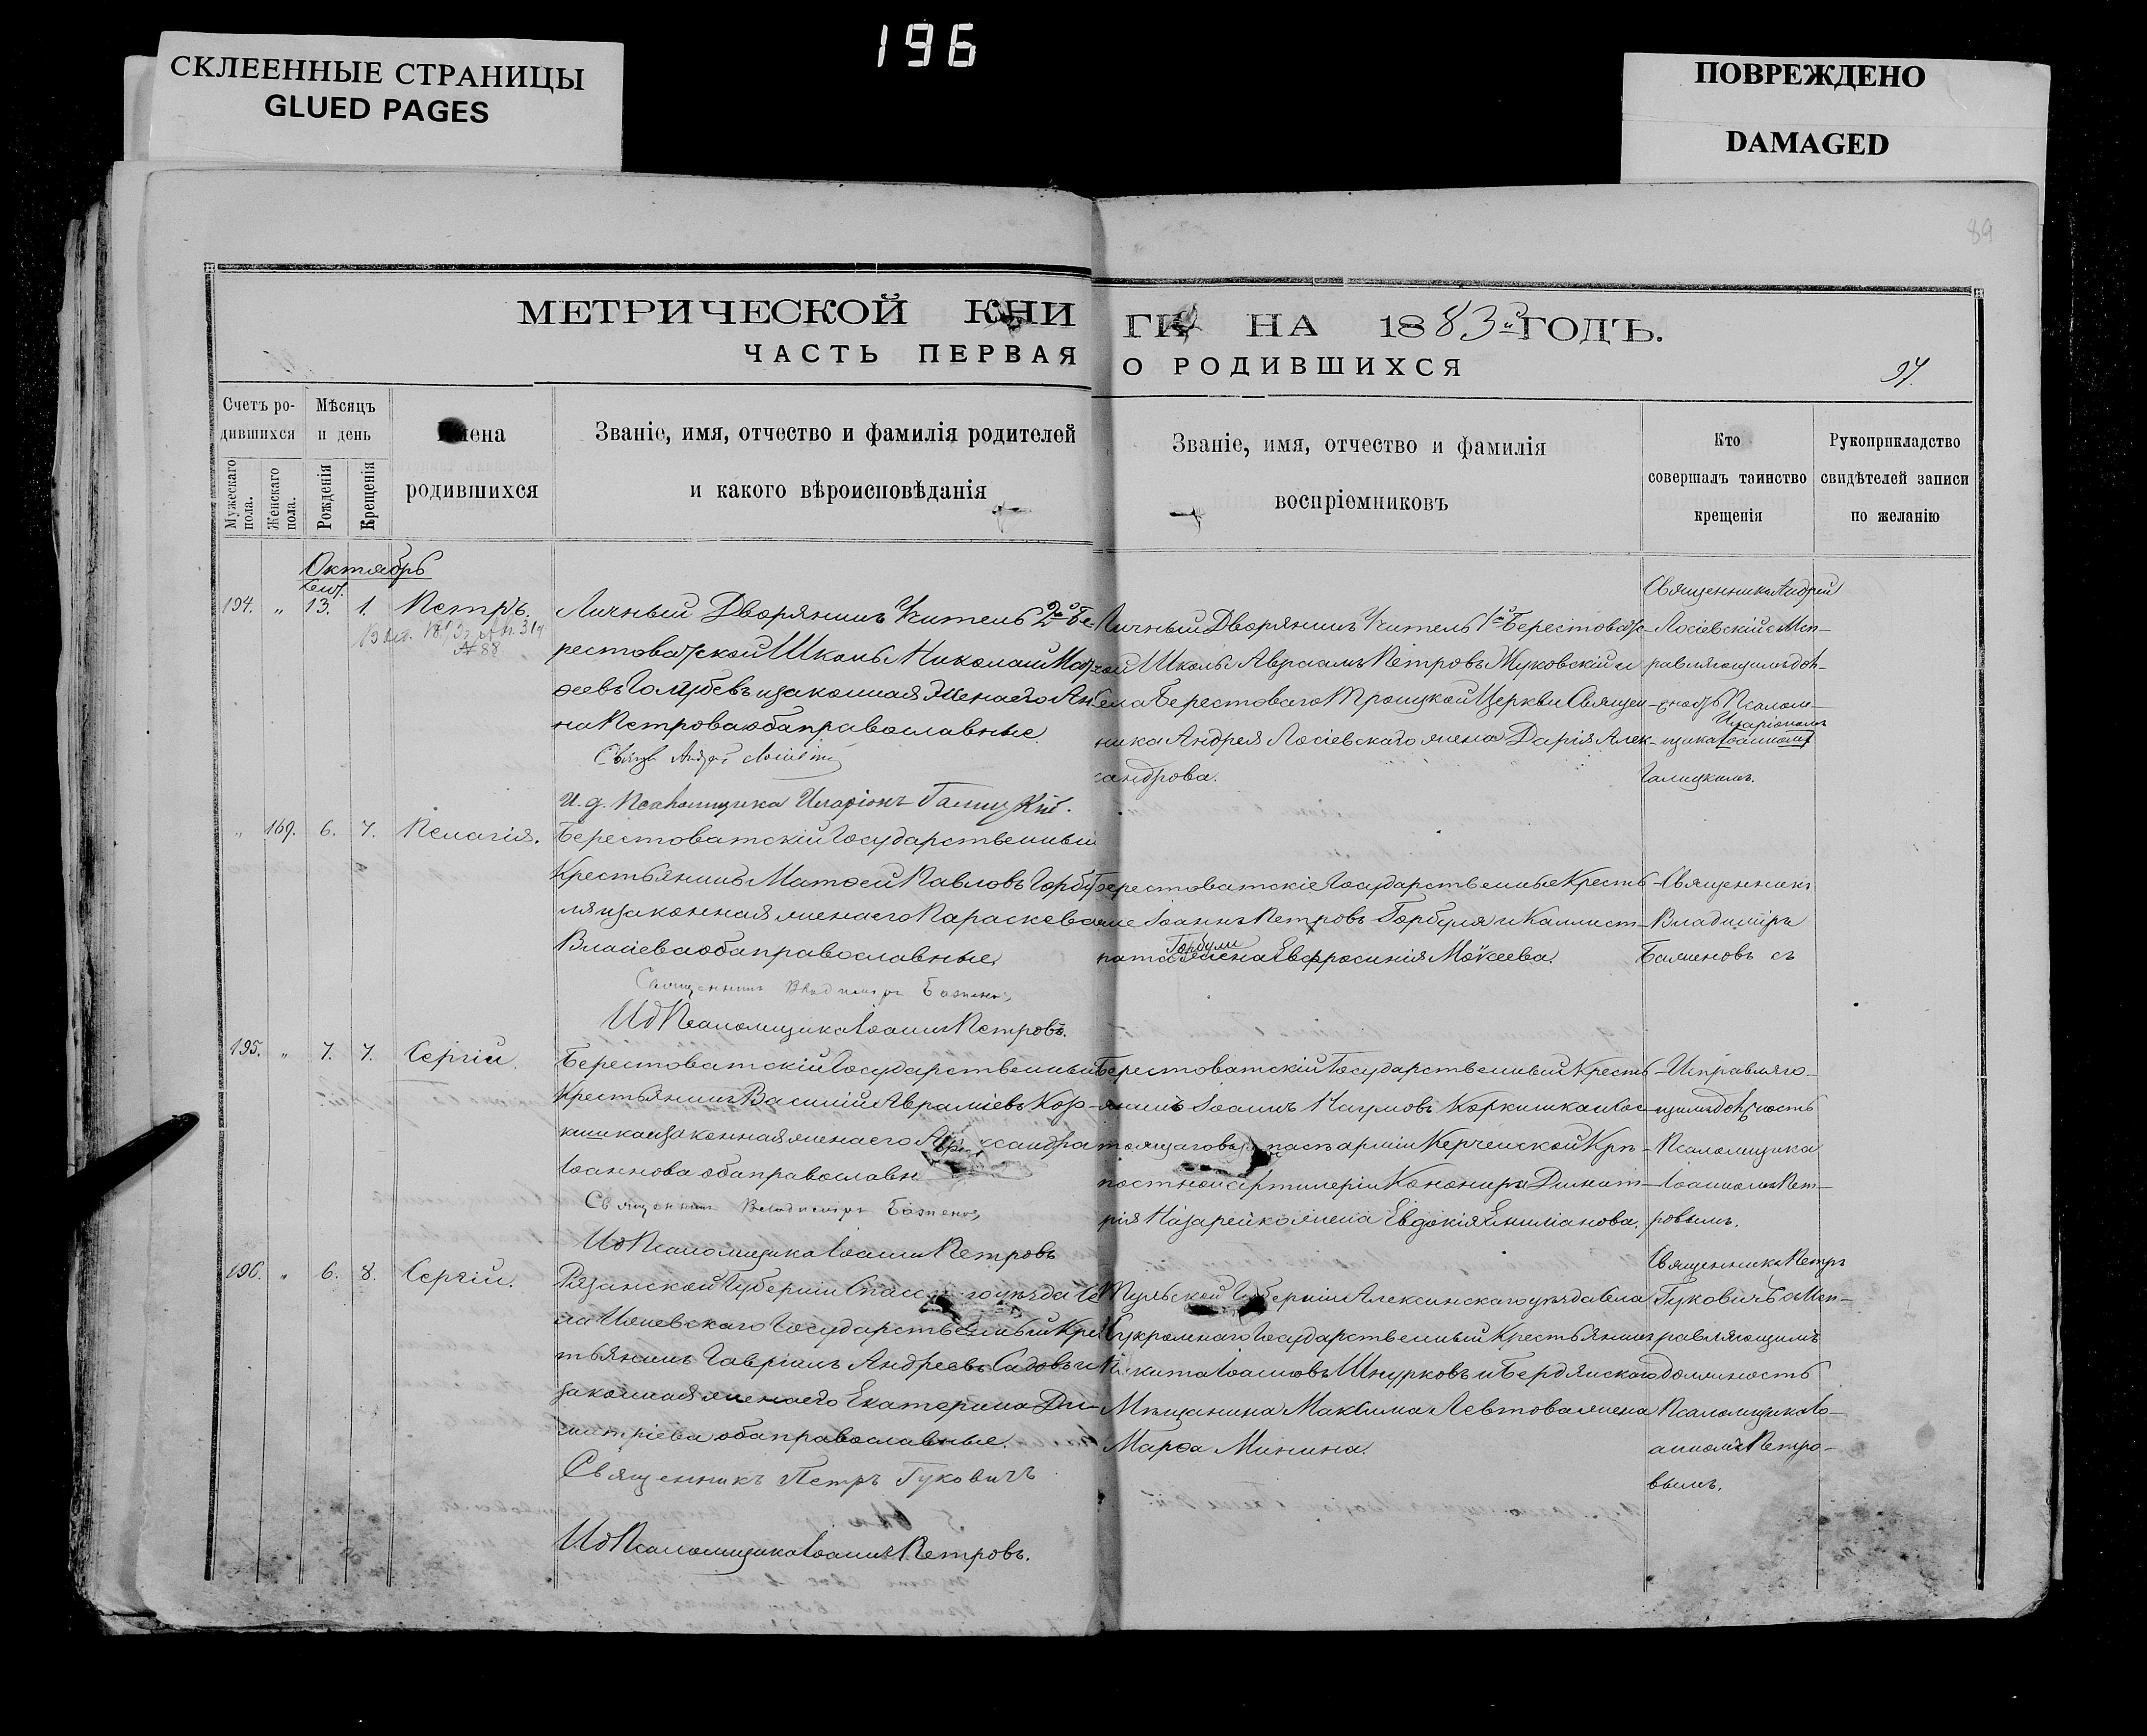 196
СКЛЕЕННЫЕ СТРАНИЦЫ
GLUED PAGES
ПОВРЕЖДЕНО
DAMAGED
89
МЕТРИЧЕСКОЙ КНИГИ НА 1883й ГОДЪ.
ЧАСТЬ ПЕРВАЯ О РОДИВШИХСЯ
Счетъ ро-
дившихся
Мужескаго пола.
Женскаго пола.
Мѣсяцъ
и день
Рожденія
Крещенія
Имена
родившихся
Званіе, имя, отчество и фамилія родителей
и какого вѣроисповѣданія
Званіе, имя, отчество и фамилія
воспріемниковъ
Кто
совершалъ таинство
крещенія
Рукоприкладство
свидѣтелей записи
по желанію
Октябрь
Сент.
194. " 13. 1. Петръ.
№ 88
Личный Дворянинъ Учитель 2й Бе-
рестоватской Школы Николай Мат-
ѳеевъ Голубевъ и законная жена его Ан-
на Петрова оба православные.
И. д. Псаломщика Иларіонъ Галицкій.
Личный Дворянинъ Учитель 1й Берестоватс-
кой Школы Авраамъ Петровъ Жуковскій и
села Берестоваго Троицкой Церкви Священ-
ника Андрея Лосіевскаго жена Дарія Алек-
сандрова.
Священникъ Андрей
Лосіевскій с Исп-
равляющимъ дол-
жность Псалом-
Иларіономъ
щика Іоанномъ
Галицкимъ.
" 169. 6. 7. Пелагія.
Берестоватскій Государственный
Крестьянинъ Матѳей Павловъ Горбу-
ля и законная жена его Параскева
Власіева оба православные.
Священникъ Владиміръ Баженовъ
Ид Псаломщика Іоаннъ Петровъ.
Берестоватскіе Государственные Кресть-
яне Іоаннъ Петровъ Горбуля и Каллист-
Горбули
рата жена Евфросинія Мокеева.
Священникъ
Владиміръ
Баженовъ съ
195. " 7. 7. Сергій.
Берестоватскій Государственный
Крестьянинъ Василій Авраміевъ Кор-
кишка и законная жена его Александра
Іоаннова оба православн
Священникъ Владиміръ Баженовъ
Ид Псаломщика Іоаннъ Петровъ
Берестоватскій Государственный Кресть-
янинъ Іоаннъ Наумовъ Коркишка и Сос-
тоящаго въ запасѣ арміи Керченской Крѣ-
постной артилеріи Канонира Димит-
рія Назарейко жена Евдокія Емиліанова.
Исправляю-
щимъ должность
Псаломщика
Іоанномъ Пет-
ровымъ.
196. " 6. 8. Сергій.
Рязанской Губерніи Спасскаго уѣзда Се-
ла Ижевскаго Государственный Крес-
тьянинъ Гавріилъ Андреевъ Садовъ и
законная жена его Екатерина Ди-
митріева оба православные.
Священникъ Петръ Гуковичъ
Ид Псаломщика Іоаннъ Петровъ.
Тульской Губерніи Алексинскаго уѣзда Села
Государственный Крестьянинъ
Никита Іоанновъ Шнурковъ и Бердянскаго
Мѣщанина Максима Левтова жена
Марѳа Минина.
Священникъ Петръ
Гуковичъ с Исп-
равляющимъ
должность
Псаломщика Іо-
анномъ Петро-
вымъ.